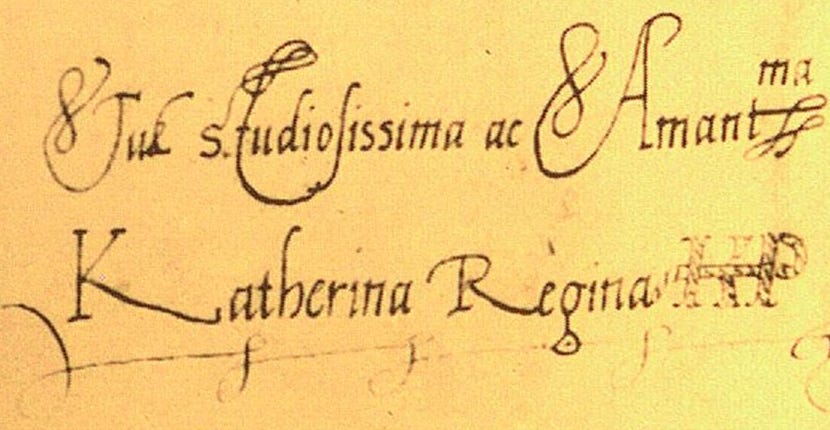 Tui studiosissima ac Amantma
Katherina Regina KP